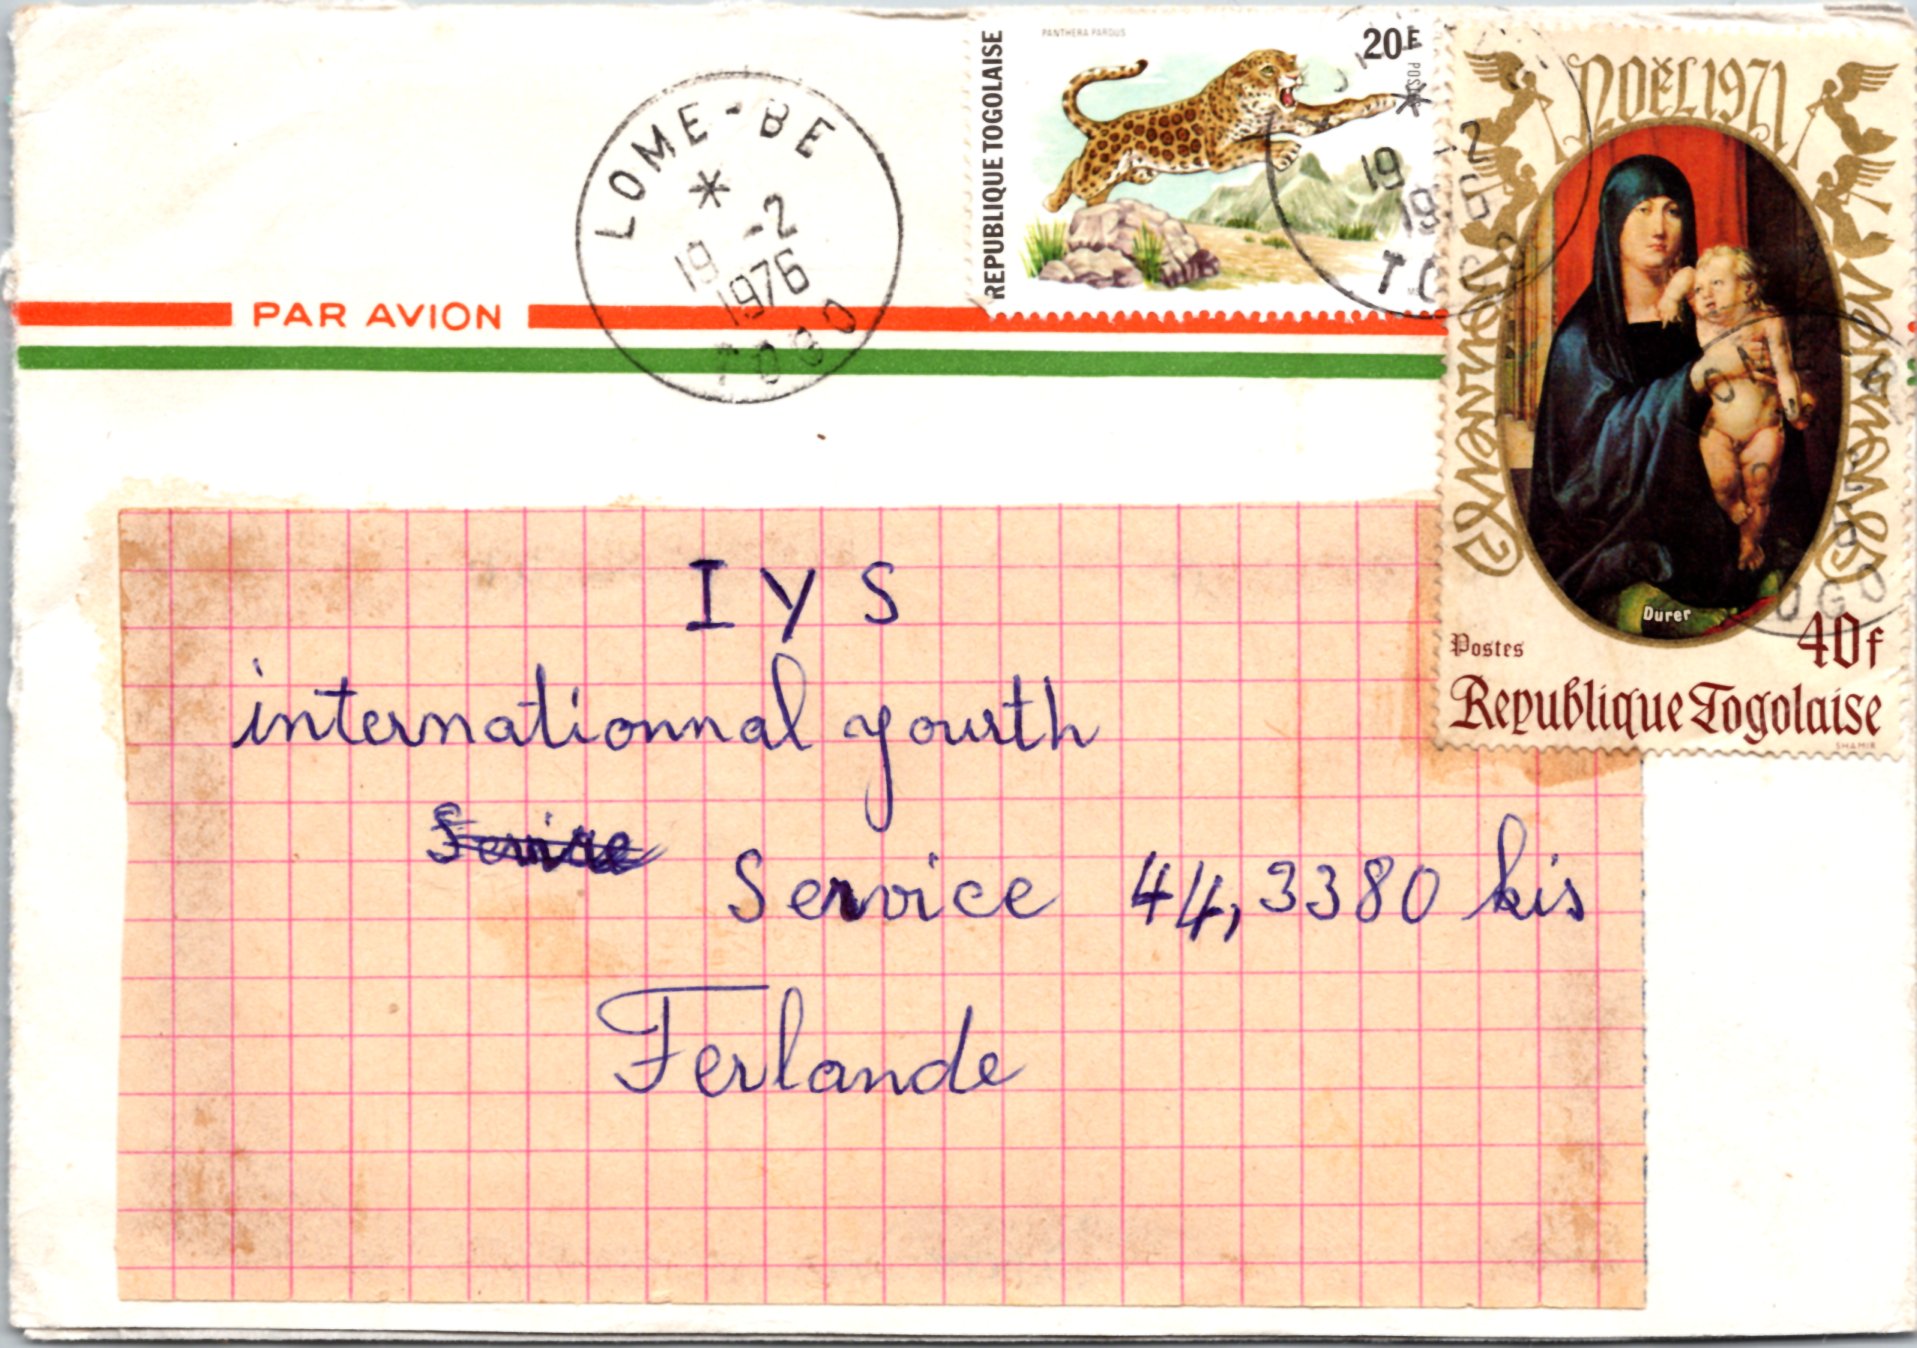 PANTHERA PARDUS
20F
POSTES
REPUBLIQUE TOGOLAISE
NOËL 1971
Durer
Postes
40f
Republique Togolaise
SHAMIR
LOME-BE
19 -2
1976
TOGO
19 -2
1976
TOGO
PAR AVION
I Y S
internationnal yourth
Service
Service 44, 3380 kis
Ferlande